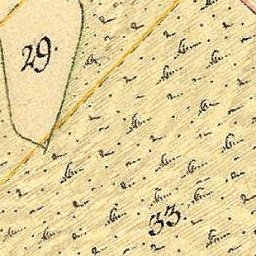 29.
33.